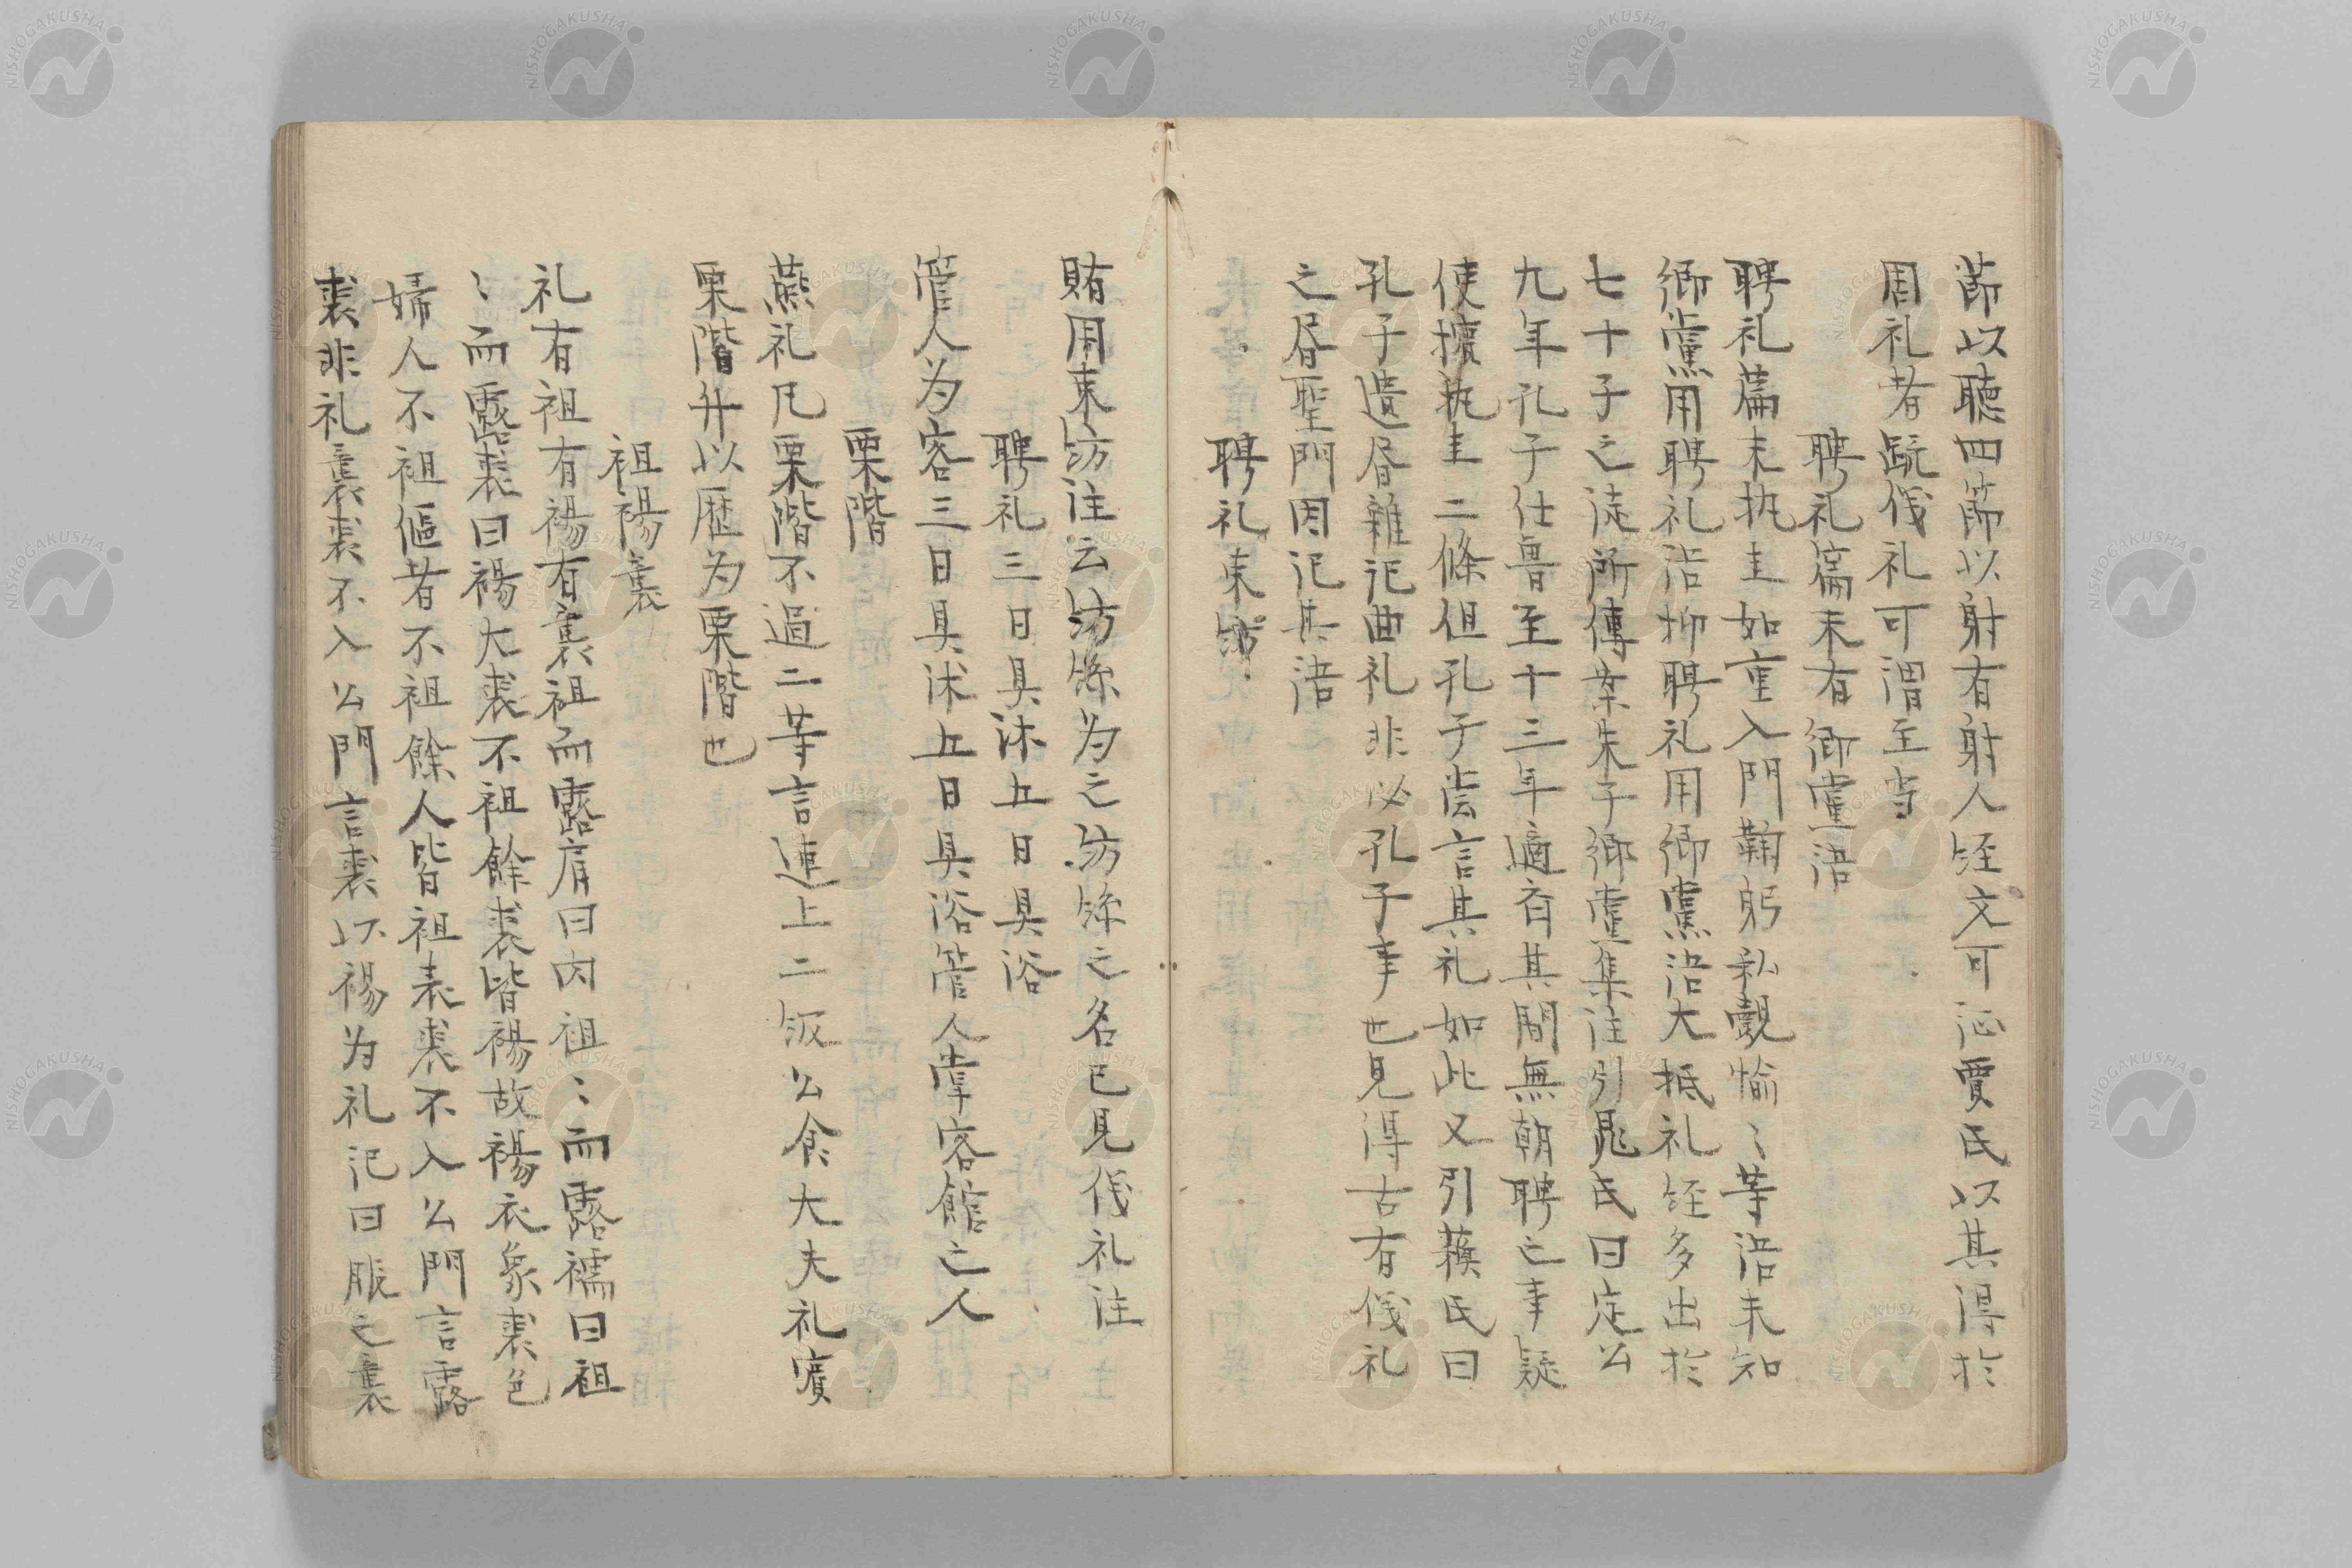 節以聴四節以射有射人経文可証賈氏以其得於
周礼者疏儀礼可謂至当
聘礼篇末有郷黨語
聘礼篇末执圭如重入門鞠躬私覿愉〻等語未知
郷黨用聘礼語抑聘礼用郷黨語大抵礼経多出於
七十子之徒所傳案朱子郷黨集注引晁氏曰定公
九年孔子仕魯至十三年適斉其間無朝聘之事疑
使擯执圭二條但孔子甞言其礼如此又引蘓氏曰
孔子遺昏雜记曲礼非必孔子事也見得古有儀礼
之昏聖門因记其語
聘礼束紡
賄用束紡注云紡絲为之紡絲之名已見儀礼注
聘礼三日具沐五日具浴
管人为客三日具沐五日具浴管人掌客館之人
栗階
燕礼凡栗階不過二等言連上二级公食大夫礼賓
栗階升以歴为栗階也
袒裼裏
礼有袒有裼有裏袒而露肩曰肉袒〻而露襦曰袒
〻而露裘曰裼大裘不袒餘裘皆裼故裼衣象裘色
婦人不袒傴者不袒餘人皆袒表裘不入公門言露
裘非礼裏裘不入公門言裘以裼为礼记曰服之裏
NISHOGAKUSHA